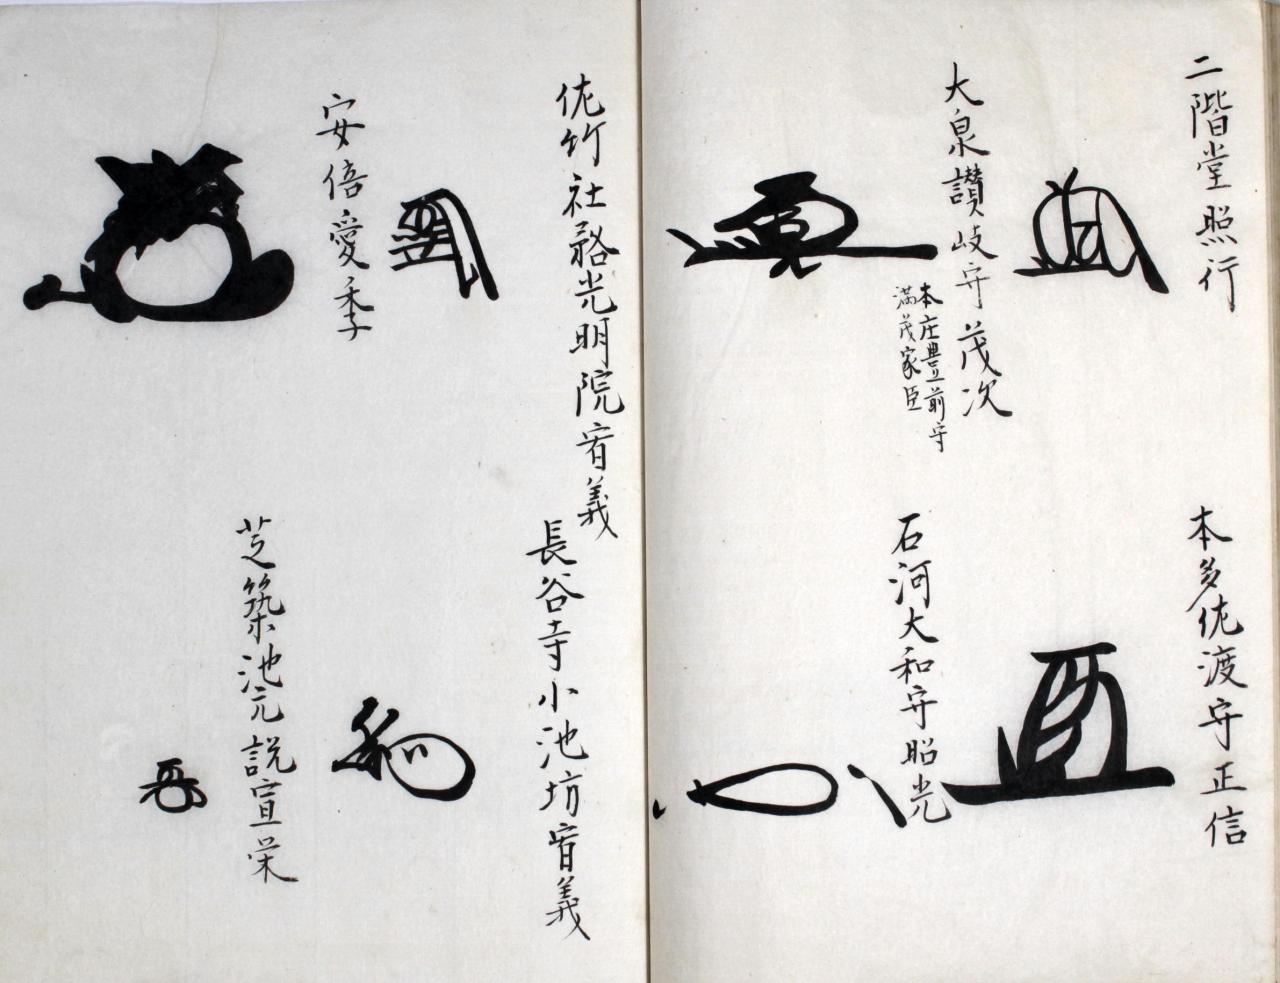 二階堂照行
本多佐渡守正信
大泉讃岐守茂次
本庄豊前守
満茂家臣
石河大和守昭光
佐竹社務光明院宥義
長谷寺小池坊宥義
安倍愛季
芝築池元説宣栄